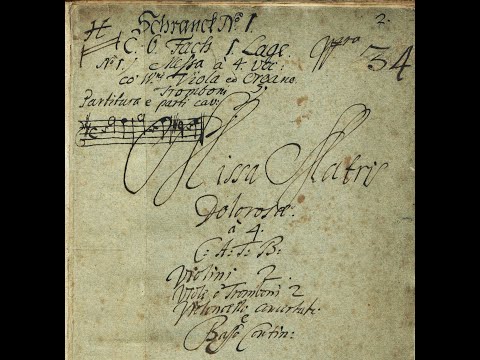 Schranck No 1. 2.
C. 6. Fach 1. Lage. 34
No 1. Messa à 4. voc:
co Viola co Organo.
Tromboni
Partitura e parti cav:
Missa Matris
Dolorosæ.
à 4.
C: A: T: B:
Violini 2.
Viole è Tromboni 2
Violoncello concertato.
e
Basso Contin: